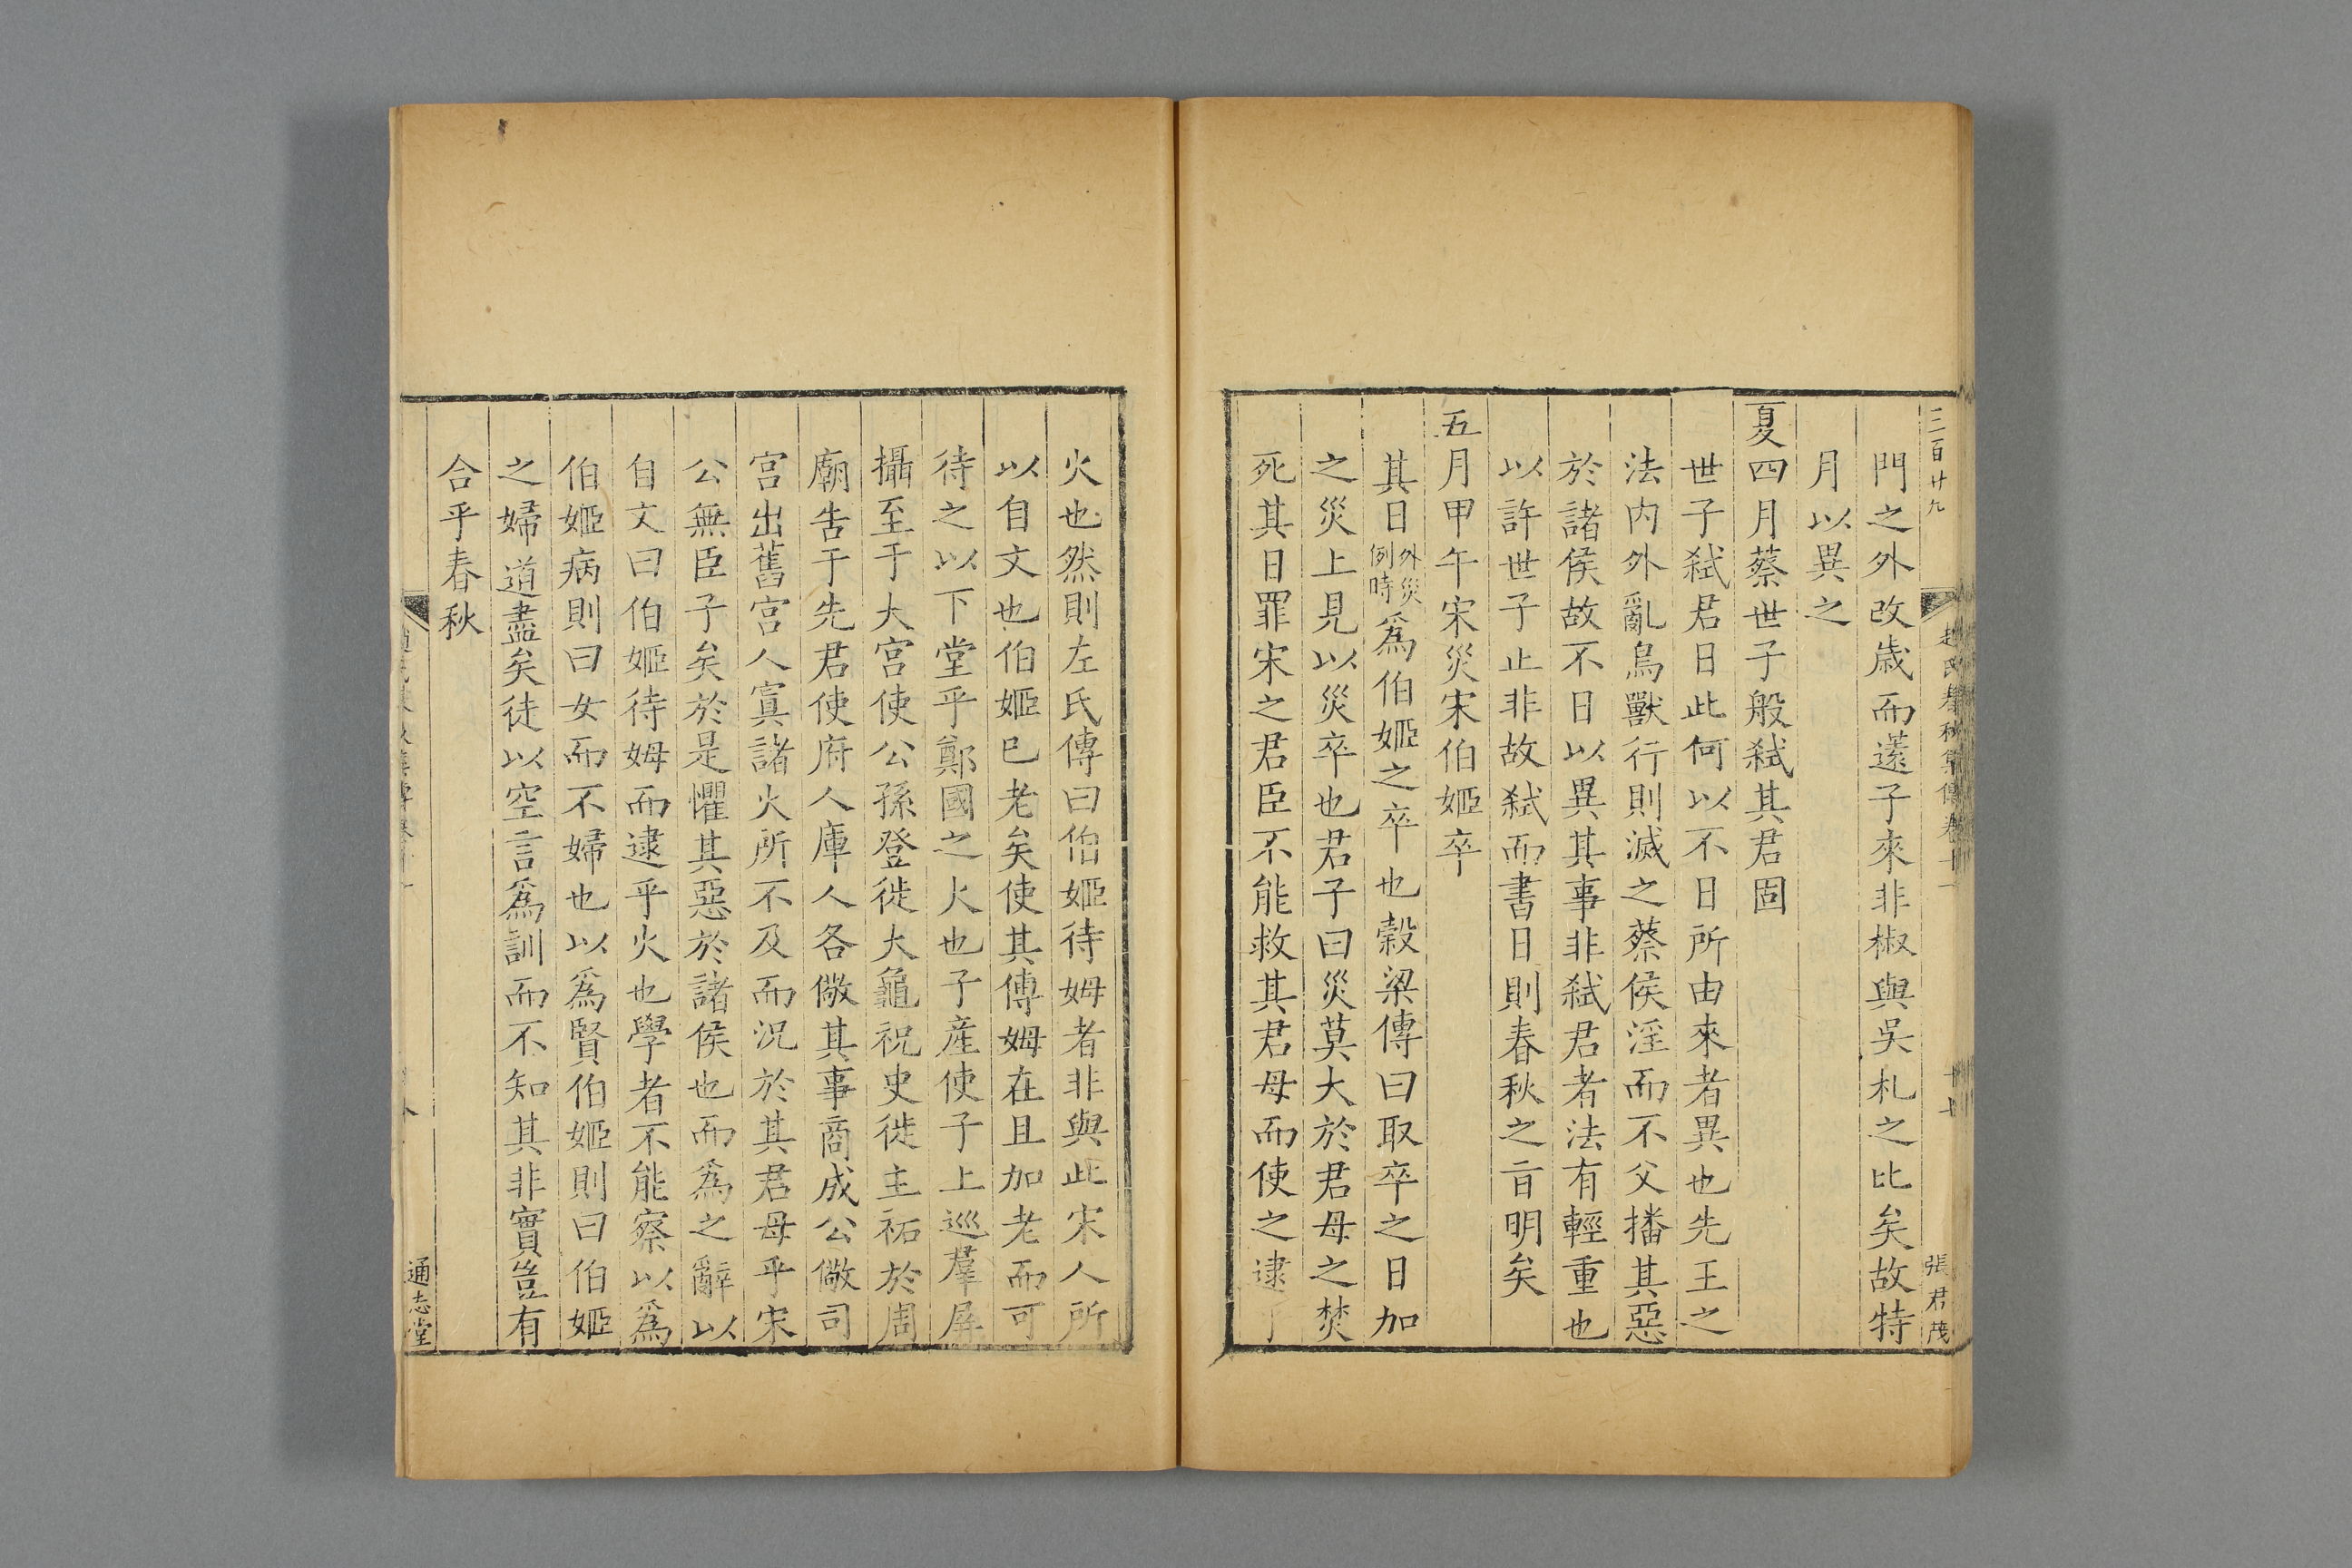 三百廿九
趙氏春秋集傳卷十一
十七
張君茂
門之外改歳而薳子來非椒與吳札之比矣故特
月以異之
夏四月蔡世子般弑其君固
世子弑君日此何以不日所由來者異也先王之
法内外亂鳥獸行則滅之蔡侯淫而不父播其惡
於諸侯故不日以異其事非弑君者法有輕重也
以許世子止非故弑而書日則春秋之㫖明矣
五月甲午宋災宋伯姬卒
其日外災例時為伯姬之卒也榖梁傳曰取卒之日加
之災上見以災卒也君子曰災莫大於君母之焚
死其日罪宋之君臣不能救其君母而使之逮于
火也然則左氏傳曰伯姬待姆者非與此宋人所
以自文也伯姬已老矣使其傅姆在且加老而可
待之以下堂乎鄭國之火也子産使子上巡羣屏
攝至于大宫使公孫登徙大龜祝史徙主祏於周
廟告于先君使府人庫人各儆其事商成公儆司
宫出舊宫人寘諸火所不及而況於其君母乎宋
公無臣子矣於是懼其惡於諸侯也而為之辭以
自文曰伯姬待姆而逮乎火也學者不能察以為
伯姬病則曰女而不婦也以為賢伯姬則曰伯姬
之婦道盡矣徒以空言為訓而不知其非實豈有
合乎春秋
通志堂